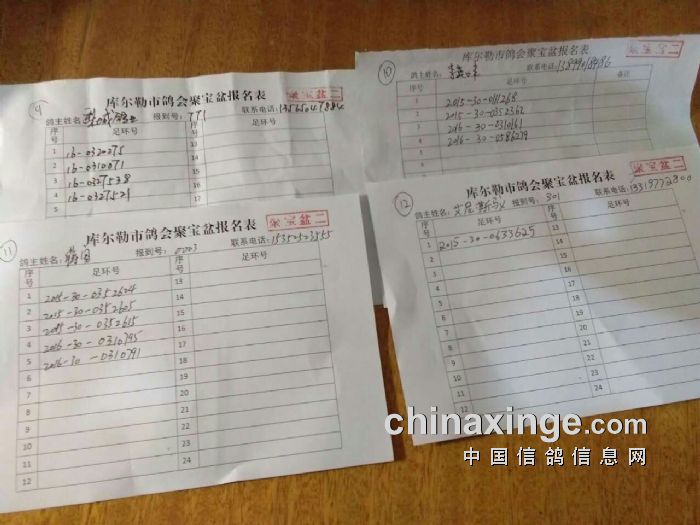 9
库尔勒市鸽会聚宝盆报名表
聚宝盆二
鸽主姓名: 报到号: 771 联系电话:
序号 足环号 序号
1 16-0320275 13
2 16-0310071 14
3 16-0327538 15
4 16-0327521 16
5 17
10
库尔勒市鸽会聚宝盆报名表
聚宝盆二
鸽主姓名: 联系电话:
足环号 备注
1 2015-30-0111268
2 2015-30-0352362
3 2016-30-0310161
4 2016-30-0586279
5
11
库尔勒市鸽会聚宝盆报名表
聚宝盆二
鸽主姓名: 报到号: 0003 联系电话:
序号 足环号 序号 足环号
1 2015-30-0352624 13
2 2015-30-0352625 14
3 2015-30-0352615 15
4 2016-30-0310795 16
5 2016-30-0310791 17
6 18
7 19
8 20
9 21
10 22
11 23
12 24
12
库尔勒市鸽会聚宝盆报名表
聚宝盆二
鸽主姓名: 艾尼斯 报到号: 301 联系电话: 13319772800
序号 足环号 序号 足环号
1 2015-30-0633625 13
2 14
3 15
4 16
5 17
6 18
7 19
8 20
9 21
10 22
11 23
12 24
chinaxinge.com
中国信鸽信息网